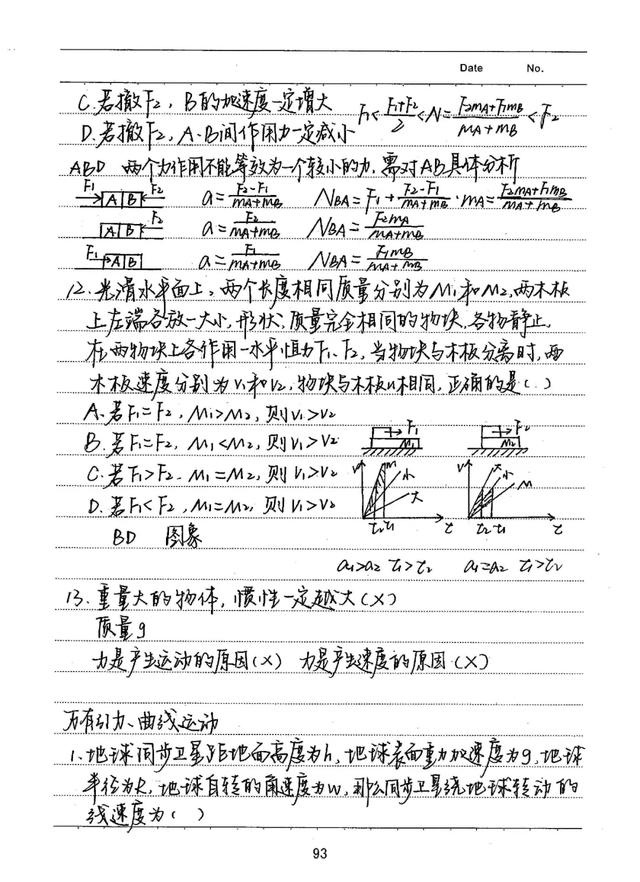 Date No.
C.若撤F₂，B的加速度一定增大 F₁<(F₁+F₂)/2<N=(F₂mA+F₁mB)/(mA+mB)<F₂
D.若撤F₂，A、B间作用力一定减小
ABD 两个力作用不能等效为一个较小的力，需对AB具体分析
F₁ A B F₂ a=(F₂-F₁)/(mA+mB) NBA=F₁+(F₂-F₁)/(mA+mB)·mA=(F₂mA+F₁mB)/(mA+mB)
A B F₂ a=F₂/(mA+mB) NBA=F₂mA/(mA+mB)
F₁ A B a=F₁/(mA+mB) NBA=F₁mB/(mA+mB)
12.光滑水平面上，两个长度相同质量分别为M₁和M₂，两木板
上左端各放一大小，形状，质量完全相同的物块，各物静止，
在两物块上各作用一水平恒力F₁、F₂，当物块与木板分离时，两
木板速度分别为v₁和v₂，物块与木板u相同，正确的是( )
A.若F₁=F₂，M₁>M₂，则v₁>v₂
B.若F₁=F₂，M₁<M₂，则v₁>v₂
C.若F₁>F₂，M₁=M₂，则v₁>v₂
D.若F₁<F₂，M₁=M₂，则v₁>v₂
BD 图象
F₁ M₁ F₂ M₂
v m 小 大 t₂ t₁ t
v 大 小 M t₂ t₁ t
a₁>a₂ t₁>t₂ a₁=a₂ t₁>t₂
13.重量大的物体，惯性一定越大(×)
质量g
力是产生运动的原因(×) 力是产生速度的原因(×)
万有引力、曲线运动
1.地球同步卫星距地面高度为h，地球表面重力加速度为g，地球
半径为R，地球自转的角速度为w，那么同步卫星绕地球转动的
线速度为( )
93